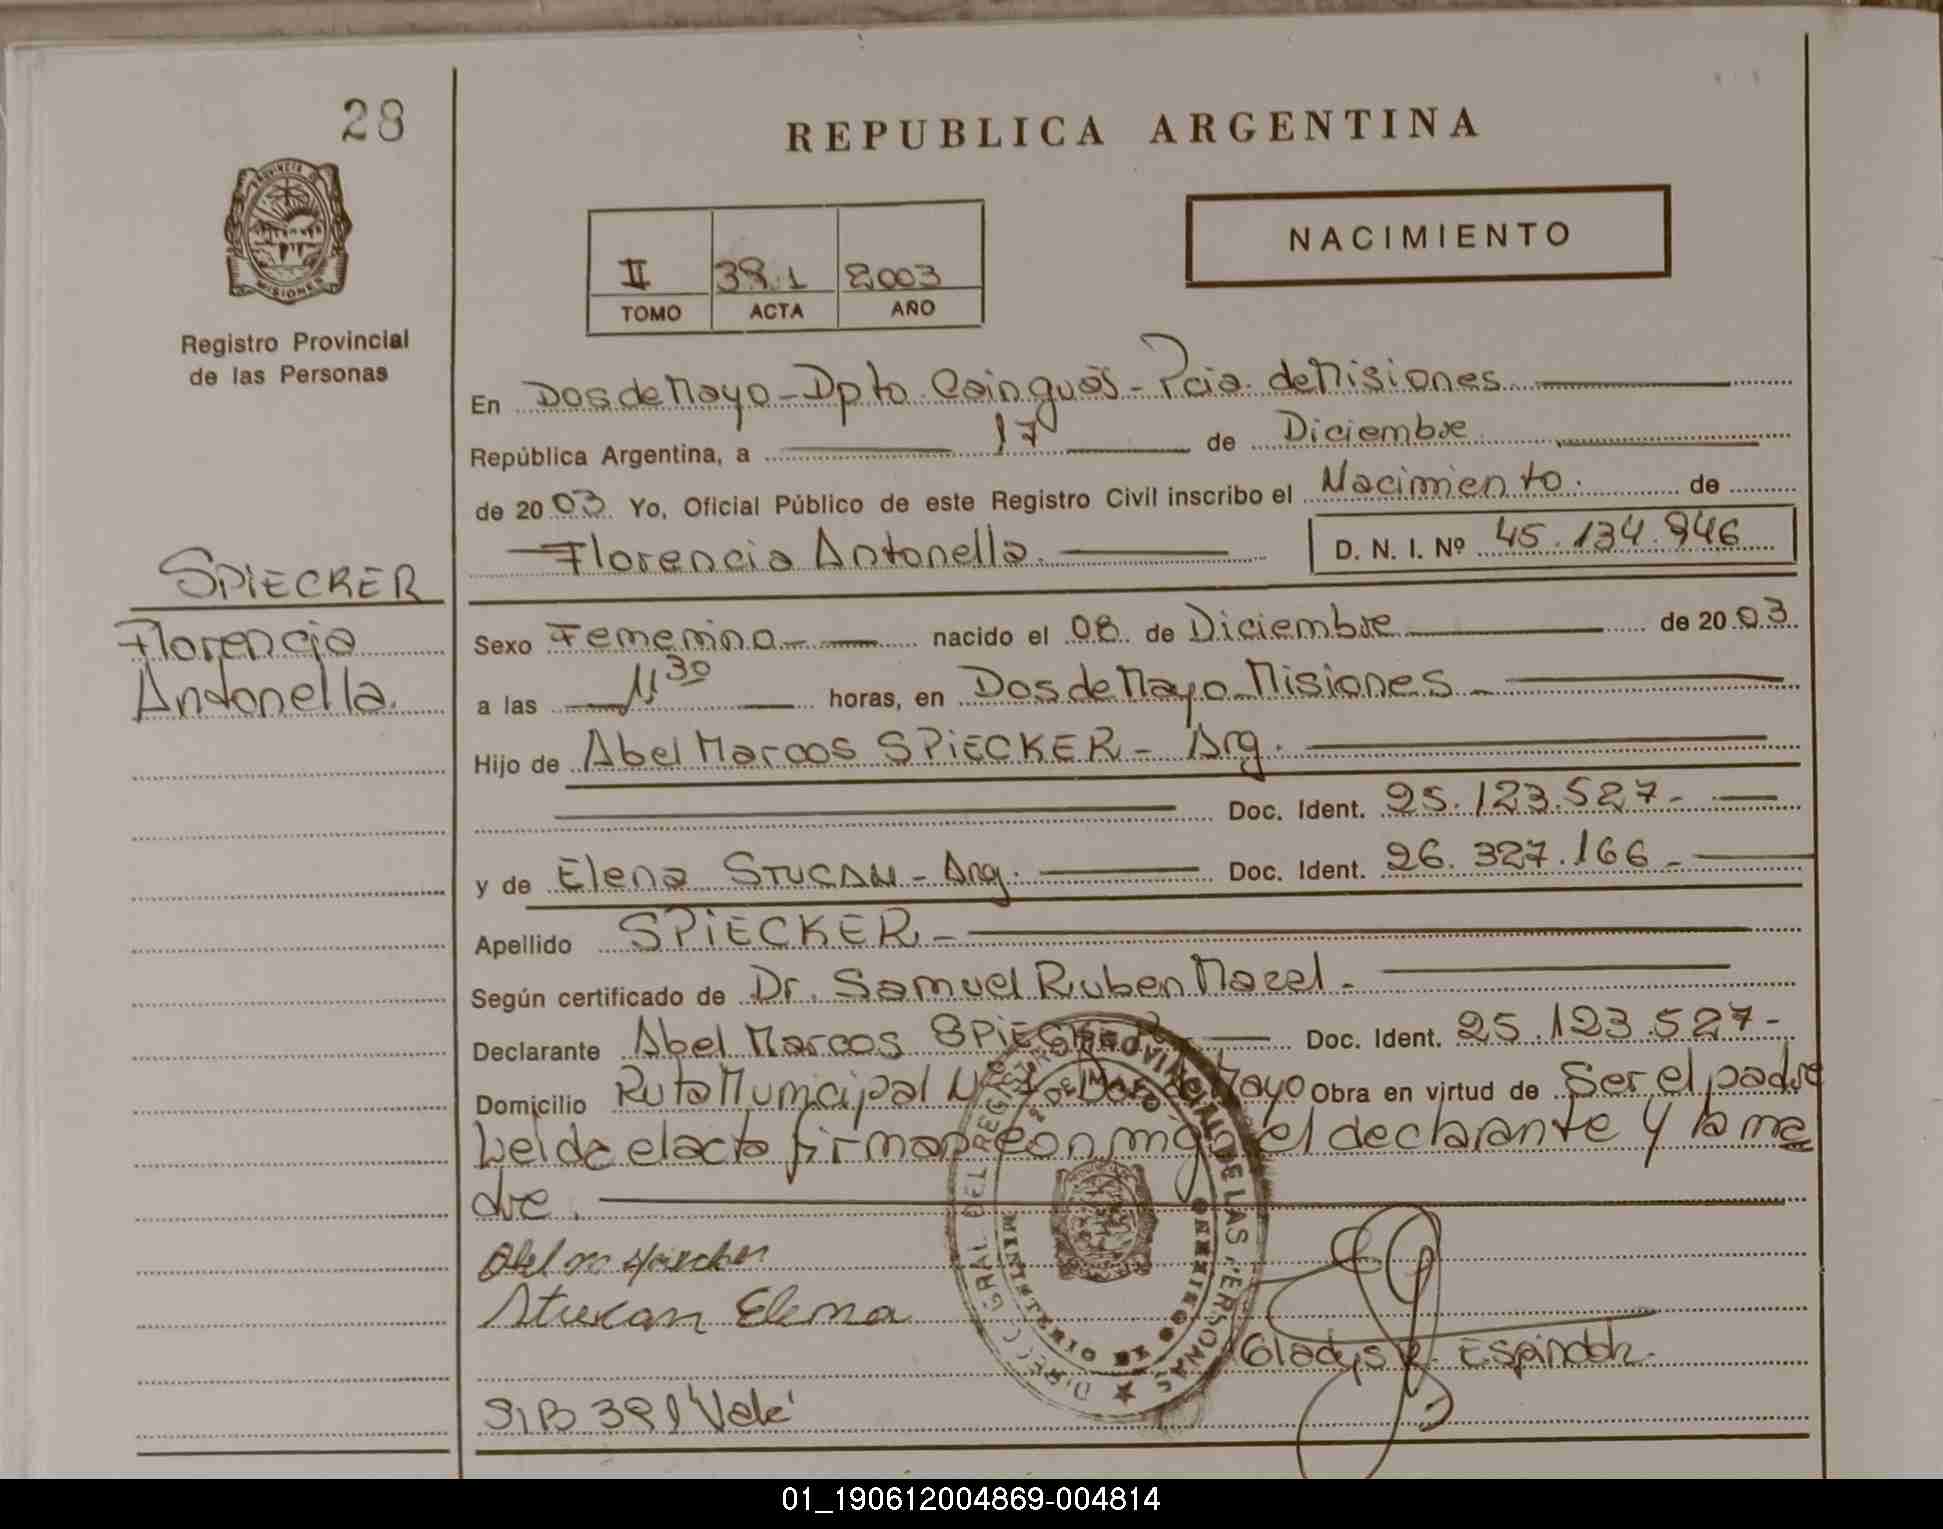 28
REPUBLICA ARGENTINA
NACIMIENTO
II 391 2003
TOMO ACTA AÑO
PROVINCIA DE MISIONES
Registro Provincial
de las Personas
En Dos de Mayo - Dpto. Cainguás - Pcia. de Misiones
República Argentina, a 17 de Diciembre
de 2003 Yo, Oficial Público de este Registro Civil inscribo el Nacimiento. de
Florencia Antonella. D. N. I. Nº 45.134.946
SPIECKER
Florencia
Antonella.
Sexo Femenino - nacido el 08 de Diciembre de 2003
a las 11 30 horas, en Dos de Mayo - Misiones -
Hijo de Abel Marcos SPIECKER - Arg.
Doc. Ident. 25.123.527 -
y de Elena STUCAN - Arg. Doc. Ident. 26.327.166 -
Apellido SPIECKER -
Según certificado de Dr. Samuel Ruben Mazal -
Declarante Abel Marcos SPIECKER Doc. Ident. 25.123.527 -
Domicilio Ruta Municipal Nº Dos de Mayo Obra en virtud de Ser el padre
Leída el acta firman conmigo el declarante y la ma
dre.
DIRECC GRAL DEL REGISTRO PROVINCIAL DE LAS PERSONAS
2 DE MAYO
MISIONES
Stucan Elena
Gladys R. Espindola
S/B 391 "Vale"
01_190612004869-004814